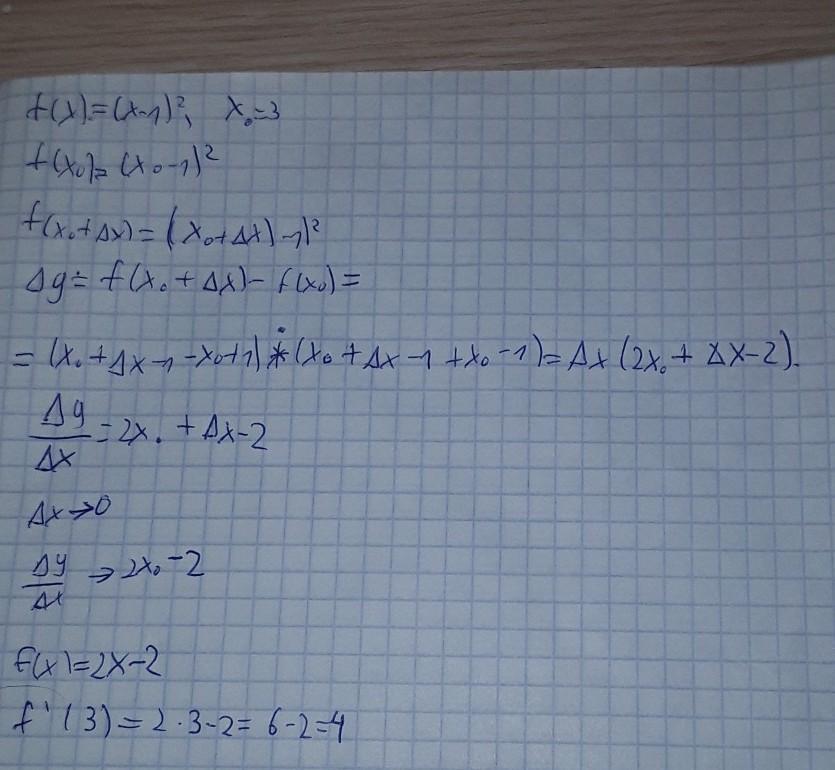 f(x)=(x-1)², x₀=3
f(x₀)=(x₀-1)²
f(x₀+Δx)=(x₀+Δx)-1)²
Δy= f(x₀+Δx)-f(x₀)=
=(x₀+Δx-1-x₀+1)*(x₀+Δx-1+x₀-1)=Δx(2x₀+Δx-2).
Δy/Δx=2x₀+Δx-2
Δx→0
Δy/Δx→2x₀-2
f(x)=2x-2
f'(3)=2·3-2=6-2=4